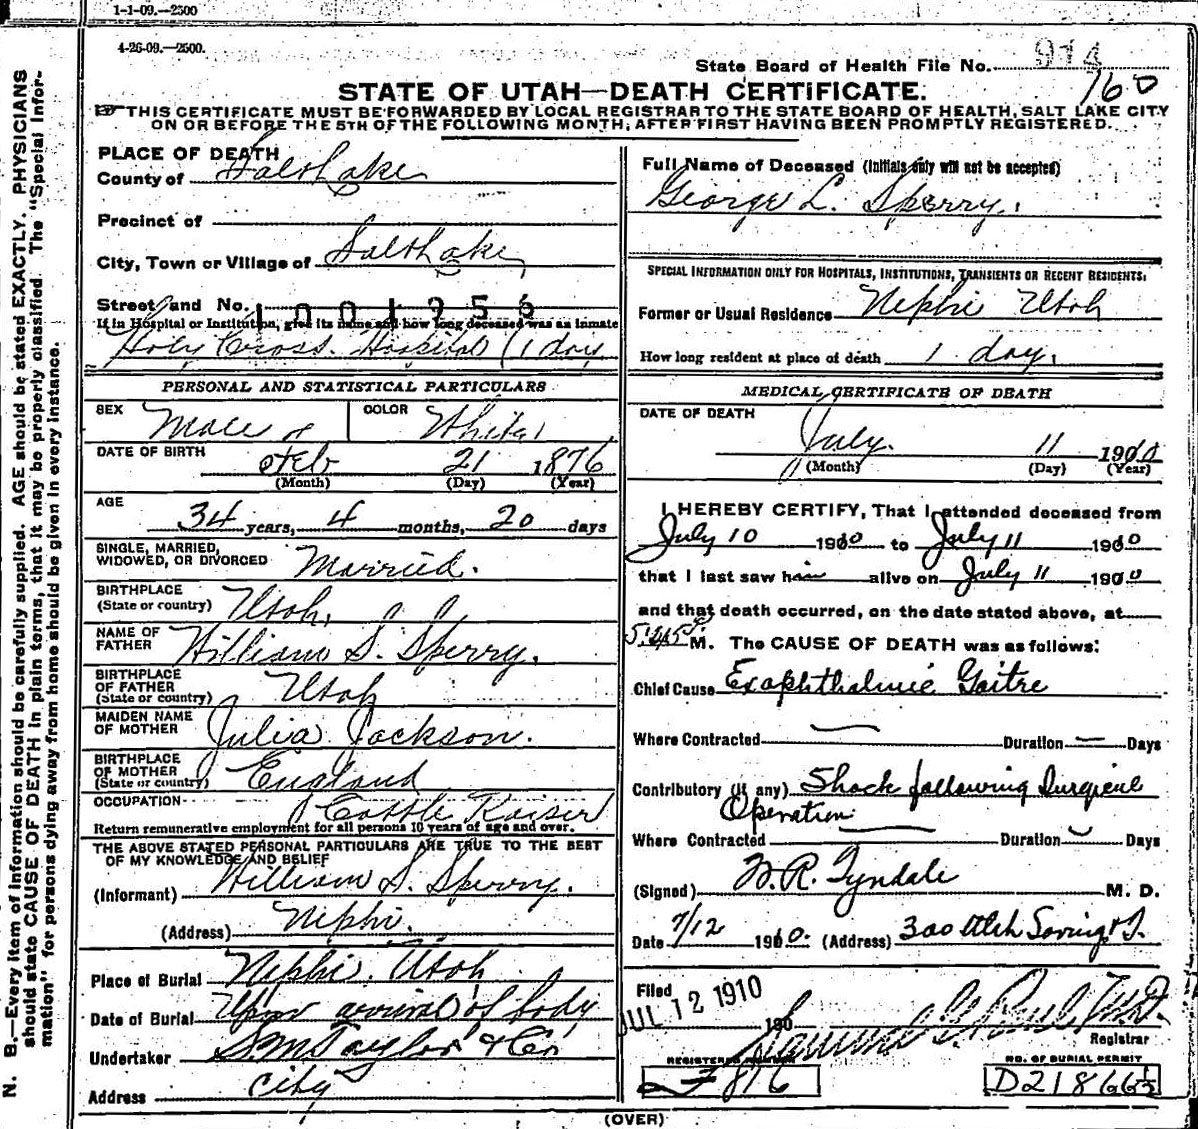 1-1-09.—2500
4-26-09.—2500.
State Board of Health File No. 914
760
STATE OF UTAH—DEATH CERTIFICATE.
THIS CERTIFICATE MUST BE FORWARDED BY LOCAL REGISTRAR TO THE STATE BOARD OF HEALTH, SALT LAKE CITY
ON OR BEFORE THE 5TH OF THE FOLLOWING MONTH, AFTER FIRST HAVING BEEN PROMPTLY REGISTERED.
N. B.—Every item of information should be carefully supplied. AGE should be stated EXACTLY. PHYSICIANS
should state CAUSE OF DEATH in plain terms, that it may be properly classified. The "Special Infor-
mation" for persons dying away from home should be given in every instance.
PLACE OF DEATH
County of Salt Lake
Precinct of
City, Town or Village of Salt Lake
Street and No.
1001956
If in Hospital or Institution, give its name and how long deceased was an inmate
Holy Cross Hospital (1 day
PERSONAL AND STATISTICAL PARTICULARS
SEX Male COLOR White
DATE OF BIRTH Feb 21 1876
(Month) (Day) (Year)
AGE
34 years, 4 months, 20 days
SINGLE, MARRIED,
WIDOWED, OR DIVORCED Married.
BIRTHPLACE
(State or country) Utah,
NAME OF
FATHER William S. Sperry.
BIRTHPLACE
OF FATHER
(State or country) Utah
MAIDEN NAME
OF MOTHER Julia Jackson.
BIRTHPLACE
OF MOTHER
(State or country) England
OCCUPATION Cattle Raiser
Return remunerative employment for all persons 10 years of age and over.
THE ABOVE STATED PERSONAL PARTICULARS ARE TRUE TO THE BEST
OF MY KNOWLEDGE AND BELIEF
(Informant) William S. Sperry.
(Address) Nephi.
Place of Burial Nephi, Utah
Date of Burial Upon arrival of body
Undertaker S.M. Taylor & Co
Address City
Full Name of Deceased (Initials only will not be accepted)
George L. Sperry.
SPECIAL INFORMATION ONLY FOR HOSPITALS, INSTITUTIONS, TRANSIENTS OR RECENT RESIDENTS.
Former or Usual Residence Nephi Utah
How long resident at place of death 1 day.
MEDICAL CERTIFICATE OF DEATH
DATE OF DEATH
July 11 1910
(Month) (Day) (Year)
I HEREBY CERTIFY, That I attended deceased from
July 10 1910 to July 11 1910
that I last saw him alive on July 11 1910
and that death occurred, on the date stated above, at
5:45 P M. The CAUSE OF DEATH was as follows:
Chief Cause Exophthalmic Goitre
Where Contracted — Duration — Days
Contributory (if any) Shock following Surgical
Operation
Where Contracted — Duration — Days
(Signed) W. R. Tyndale M. D.
Date 7/12 1910. (Address) 300 Utah Savings & T.
Filed
JUL 12 1910 190
Samuel G. Paul, M.D.
Registrar
REGISTERED NUMBER
816
NO. OF BURIAL PERMIT
(OVER)